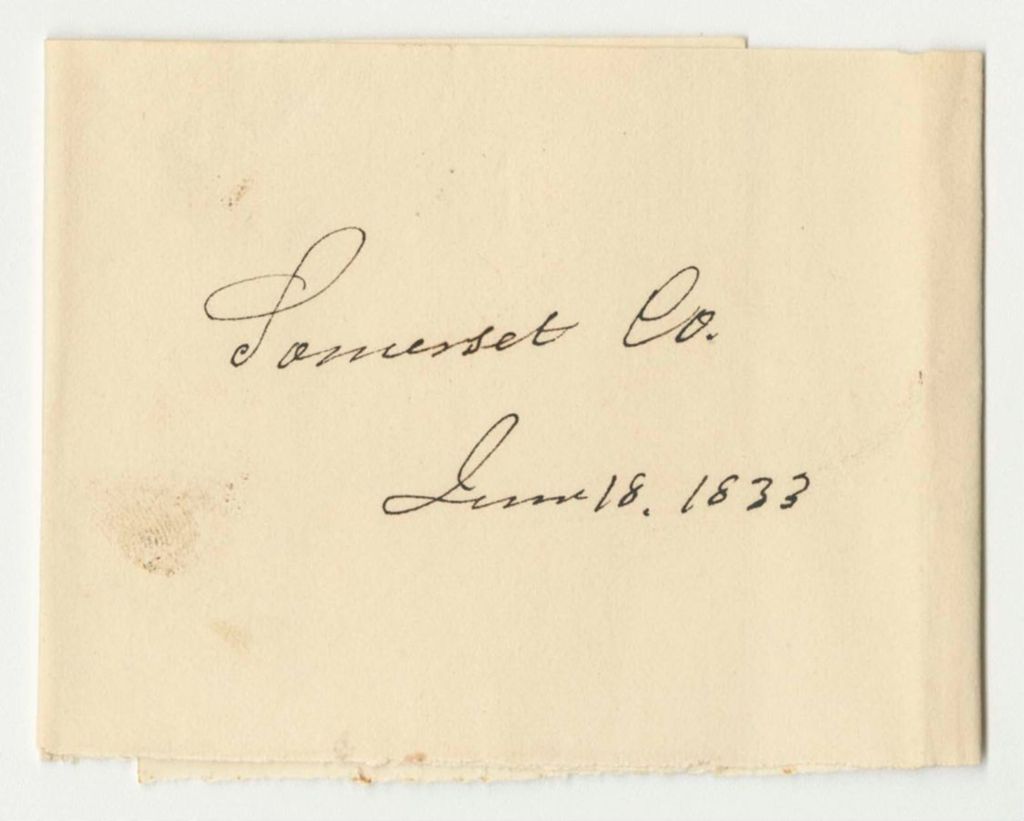 Somerset Co.
June 18. 1833